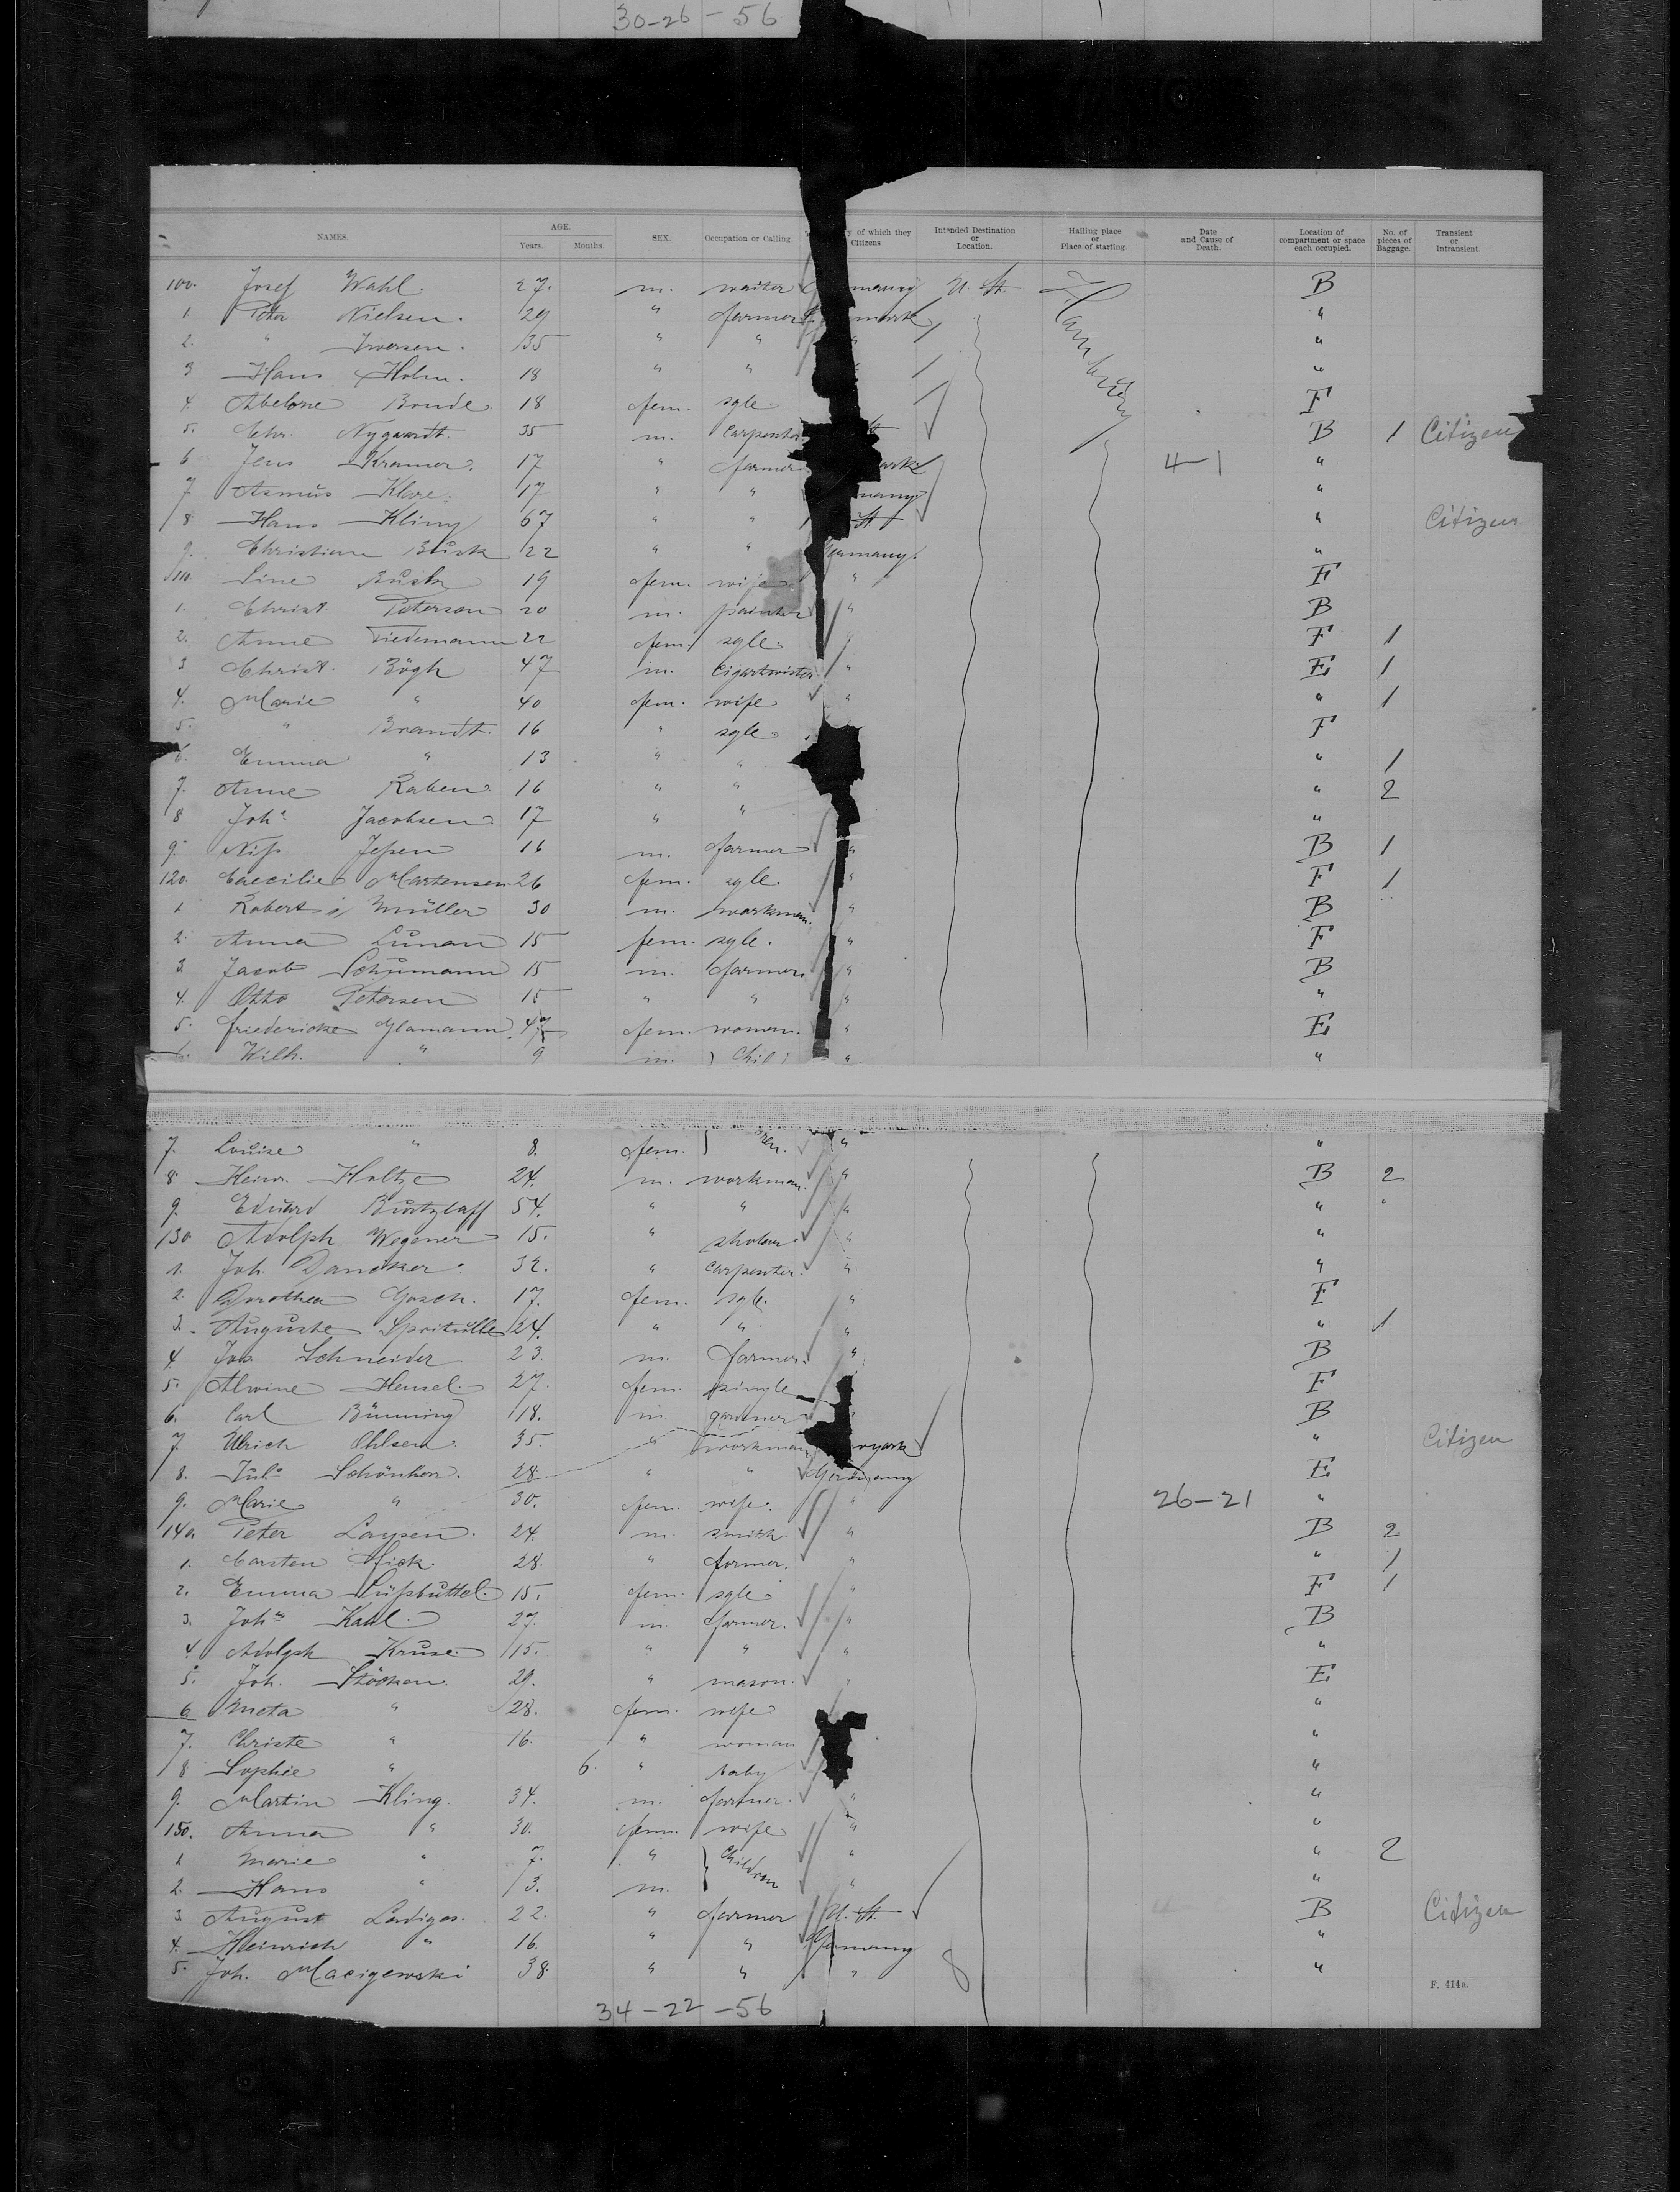 30-26-56
NAMES. AGE. Years. Months. SEX. Occupation or Calling. y of which they Citizens Intended Destination or Location. Hailing place or Place of starting. Date and Cause of Death. Location of compartment or space each occupied. No. of pieces of Baggage. Transient or Intransient.
100. Josef Wahl. 27. m. waiter many U. St. Hamburg B
1. Peter Nielsen. 29 " farmer mark "
2. " Iversen. 35 " " "
3 Hans Holm. 18 " " "
4. Abelone Bonde 18 fem. sgle F
5. Chr. Nygaardt. 35 m. Carpenter St B 1 Citizen
6 Jens Kramer. 17 " farmer ark 4-1 "
7 Asmus Klare. 17 " " many "
8 Hans Kling 67 " " St " Citizen
9. Christian Busk 22 " " Germany. "
110. Sine Busk 19 fem. wife " F
1. Christ. Peterson 20 m. painter " B
2. Anne Tiedemann 22 fem. sgle " F 1
3 Christ. Bögh 47 m. Cigartwister " E 1
4. Marie " 40 fem. wife " " 1
5. " Brandt. 16 " sgle F
6. Emma " 13 " " " 1
7. Anne Raben 16 " " " 2
8 Johs Jacobsen 17 " " "
9. Niss Jessen 16 m. farmer " B 1
120. Caecilie Martensen 26 fem. sgle. " F 1
1 Robert Müller 30 m. workman. " B
2. Anna Lunau 15 fem. sgle. " F
3 Jacob Schumann 15 m. farmer " B
4. Otto Petersen 15 " " " "
5. Friedericke Glamann 47 fem. woman. " E
6. Wilh. " 9 m. Chil " "
7. Louise " 8. fem. dren. " "
8 Heinr. Holtze 24. m. workman. " B 2
9. Eduard Burtzlaff 54. " " " "
130 Adolph Wegener 15. " " "
1. Joh. Dancker 32. " Carpenter. " "
2. Dorothea Gosch. 17. fem. sgle. " F
3. Auguste Spritulle 24. " " " " 1
4. Joh Schneider 23. m. farmer. " B
5. Alwine Hensel. 27. fem. single F
6. Carl Bünning 18. m. gardner " B
7. Ulrich Ohlsen. 35. " workman " Citizen
8. Juls Schönherr. 28 " " Germany E
9. Marie " 30. fem. wife. " 26-21 "
140. Peter Laysen. 24. m. smith. " B 2
1. Carsten Fick. 28. " farmer. " " 1
2. Emma Süssbuttel. 15. fem. sgle " F 1
3. Johs Kahl. 27. m. farmer. " B
4. Adolph Kruse. 15. " " " "
5. Joh. Stöcken. 29. " mason. " E
6 Meta " 28. fem. wife "
7. Christe " 16. " woman "
8 Sophie " 6. " baby "
9. Martin Kling. 34. m. farmer. " "
150. Anna " 30. fem. wife " "
1 Marie " 7. " Children " " 2
2. Hans " 3. m. " "
3 August Ladiges. 22. " farmer U. St. B Citizen
4. Heinrich " 16. " " Germany "
5. Joh. Macigewski 38. " " " "
F. 414a.
34-22-56